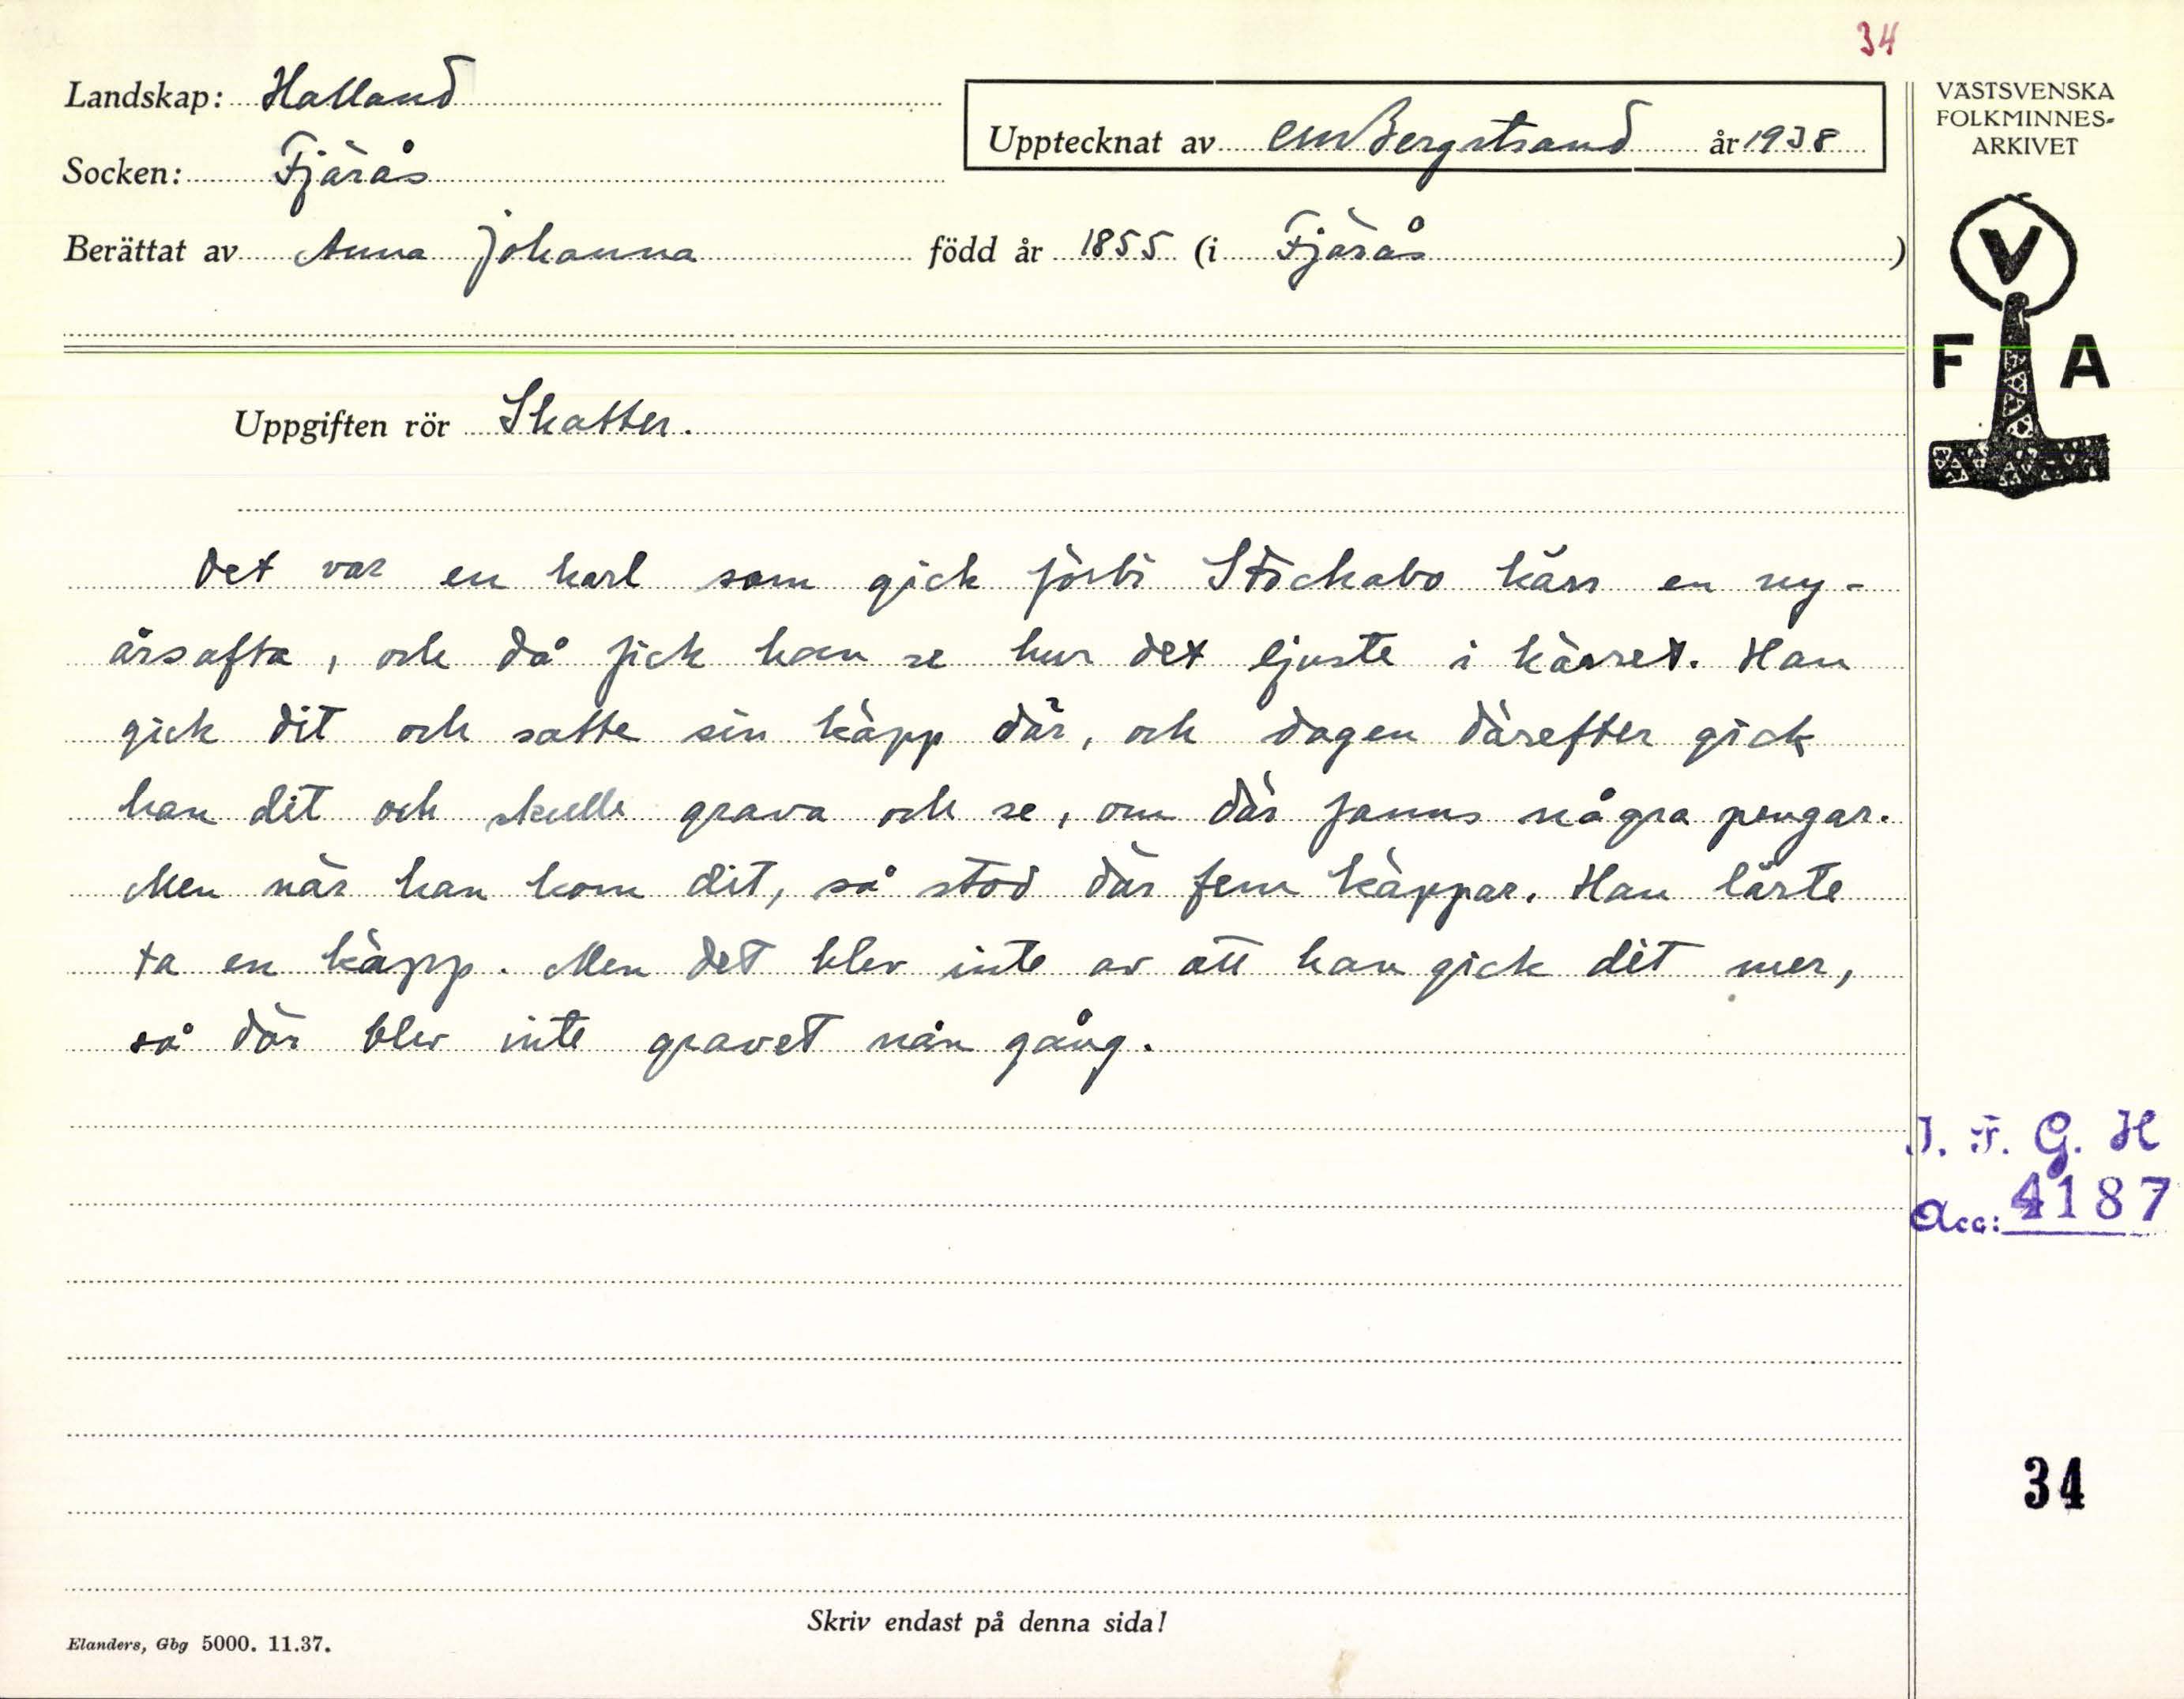 34
Landskap: Halland
Upptecknat av CMBergstrand år 1938
Socken: Fjärås
Berättat av Anna Johanna född år 1855 (i Fjärås)
VÄSTSVENSKA
FOLKMINNES-
ARKIVET
V
F A
Uppgiften rör Skatter.
Det var en karl som gick förbi Stockabo kärr en ny-
årsafta, och då fick han se hur det ljuste i kärret. Han
gick dit och satte sin käpp där, och dagen därefter gick
han dit och skulle grava och se, om där fanns några pengar.
Men när han kom dit, så stod där fem käppar. Han lärte
ta en käpp. Men det blev inte av att han gick dit mer,
så där blev inte gravet nån gång.
I. F. G. H
Acc: 4187
34
Skriv endast på denna sida!
Elanders, Gbg 5000. 11.37.